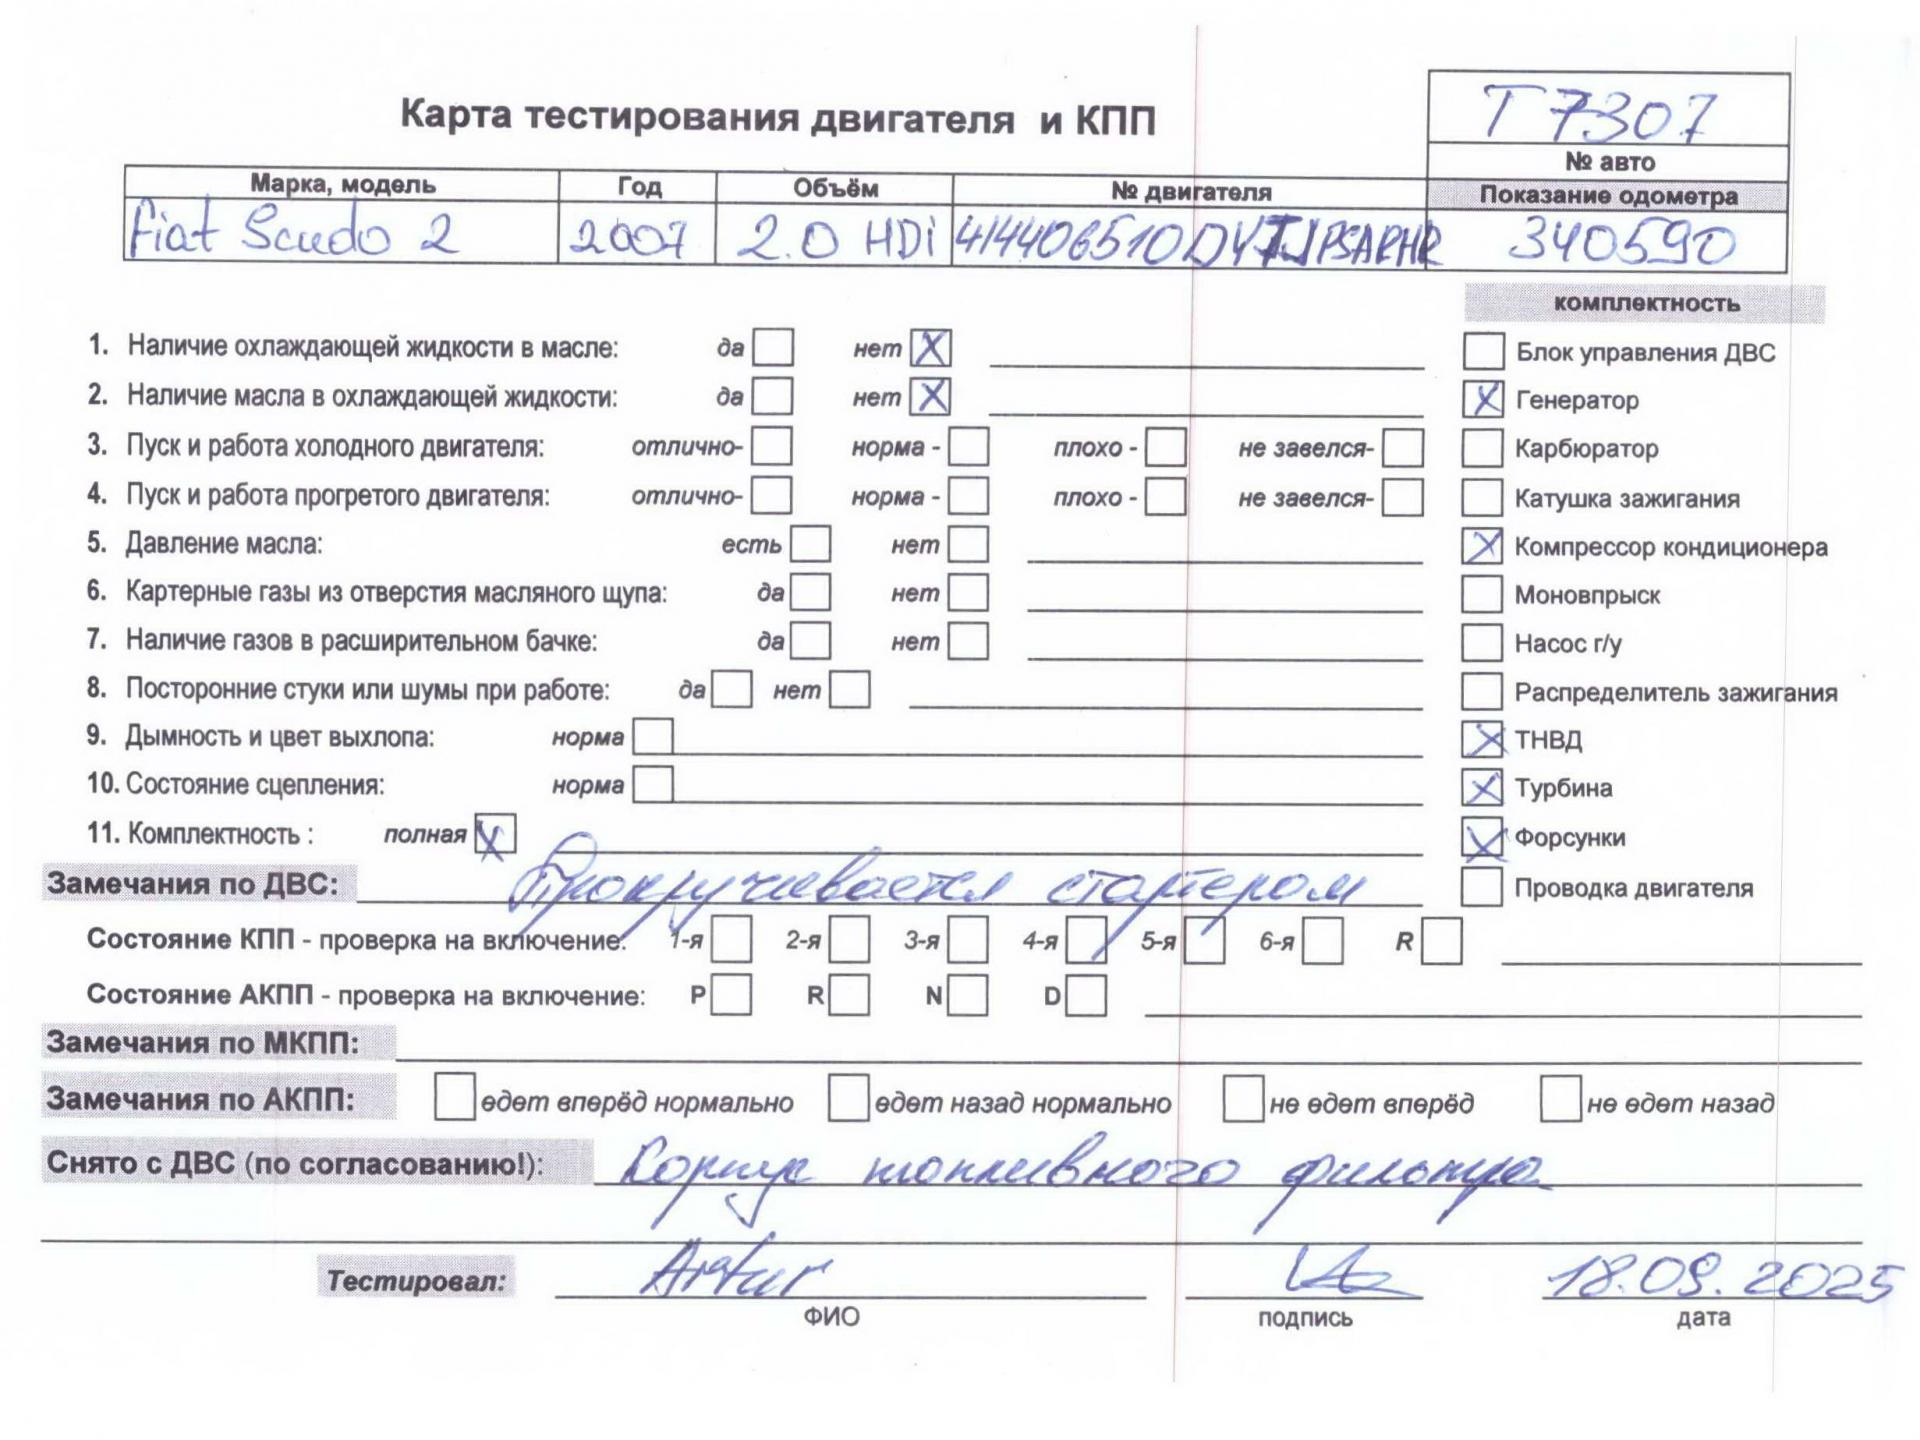 T 7307
Карта тестирования двигателя и КПП
№ авто
Марка, модель Год Объём № двигателя Показание одометра
Fiat Scudo 2 2007 2.0 HDi 340590
комплектность
1. Наличие охлаждающей жидкости в масле: да нет X Блок управления ДВС
2. Наличие масла в охлаждающей жидкости: да нет X X Генератор
3. Пуск и работа холодного двигателя: отлично- норма - плохо - не завелся- Карбюратор
4. Пуск и работа прогретого двигателя: отлично- норма - плохо - не завелся- Катушка зажигания
5. Давление масла: есть нет X Компрессор кондиционера
6. Картерные газы из отверстия масляного щупа: да нет Моновпрыск
7. Наличие газов в расширительном бачке: да нет Насос г/у
8. Посторонние стуки или шумы при работе: да нет Распределитель зажигания
9. Дымность и цвет выхлопа: норма X ТНВД
10. Состояние сцепления: норма X Турбина
11. Комплектность : полная X X Форсунки
Замечания по ДВС: Прокручивается стартером Проводка двигателя
Состояние КПП - проверка на включение: 1-я 2-я 3-я 4-я 5-я 6-я R
Состояние АКПП - проверка на включение: P R N D
Замечания по МКПП:
Замечания по АКПП: едет вперёд нормально едет назад нормально не едет вперёд не едет назад
Снято с ДВС (по согласованию!): Корпус топливного фильтра
Тестировал: Artur 18.09.2025
ФИО подпись дата